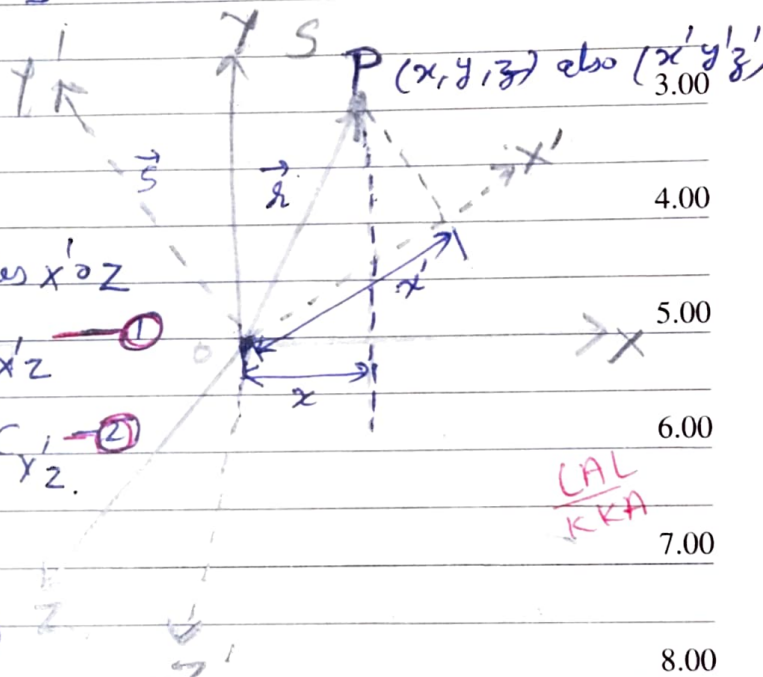 Y S
Y'
P (x, y, z) also (x' y' z')
3.00
X'
4.00
x' o z
x'
5.00
①
x' z
o
X
x
6.00
②
x' z.
LAL
KKA
7.00
Z
Z'
8.00